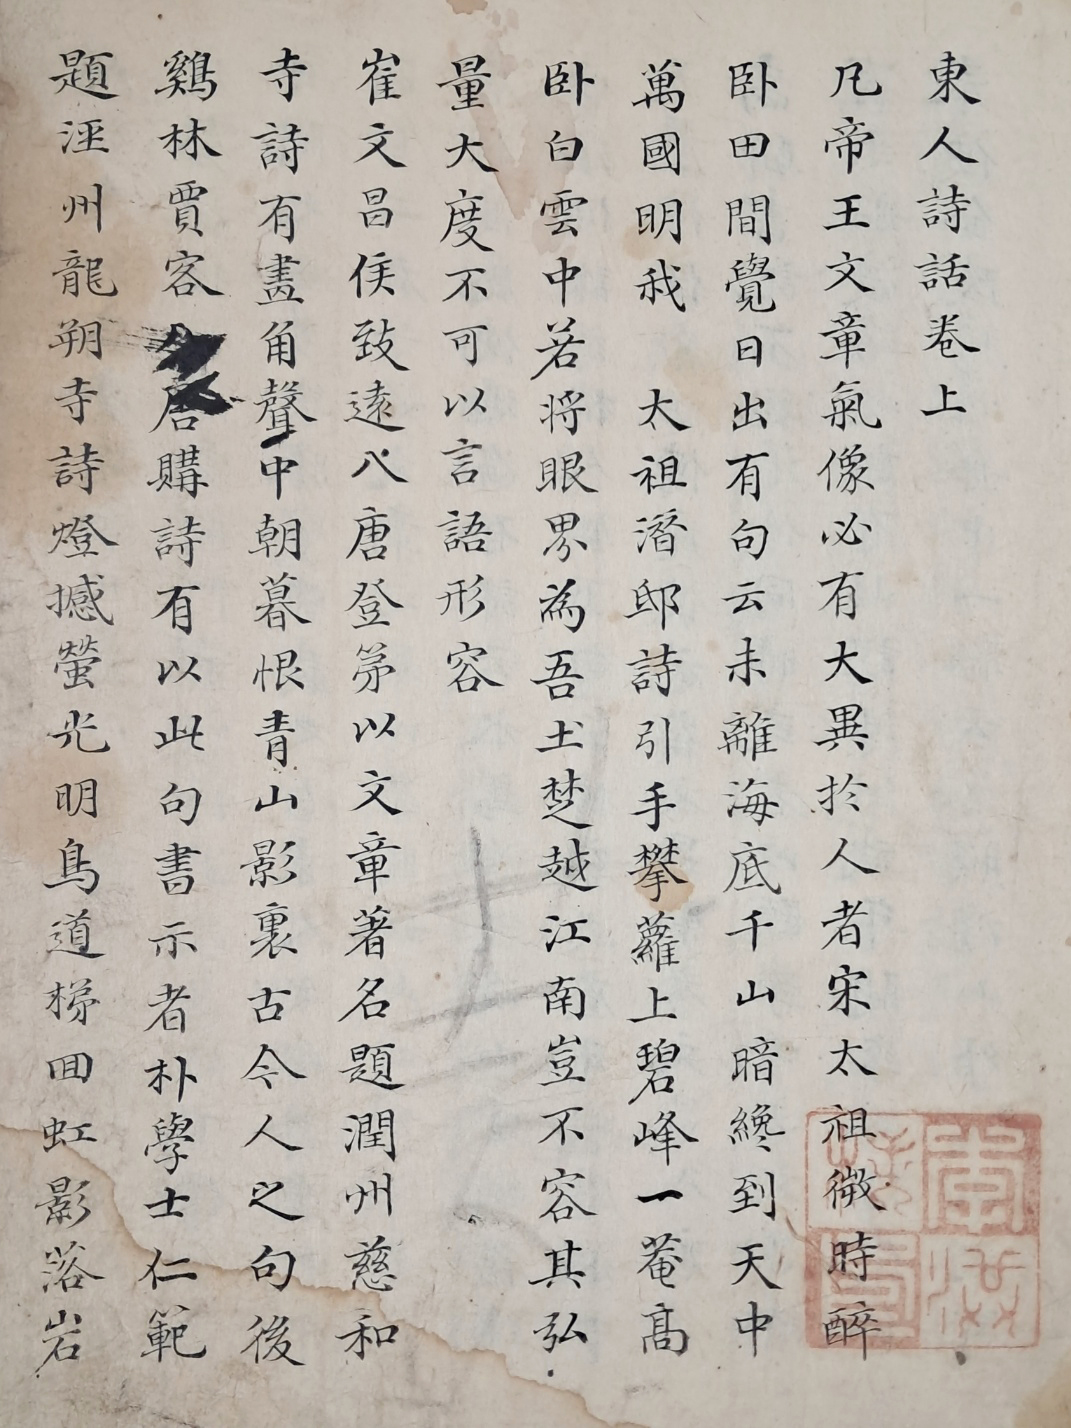 東人詩話卷上
凡帝王文章氣像必有大異於人者宋太祖微時醉
臥田間覺日出有句云未離海底千山暗纔到天中
萬國明我 太祖潛邸詩引手攀蘿上碧峰一菴高
臥白雲中若將眼界為吾土楚越江南豈不容其弘
量大度不可以言語形容
崔文昌侯致遠入唐登第以文章著名題潤州慈和
寺詩有畫角聲中朝暮恨青山影裏古今人之句後
鷄林賈客唐購詩有以此句書示者朴學士仁範
題涇州龍朔寺詩燈撼螢光明鳥道梯回虹影落岩